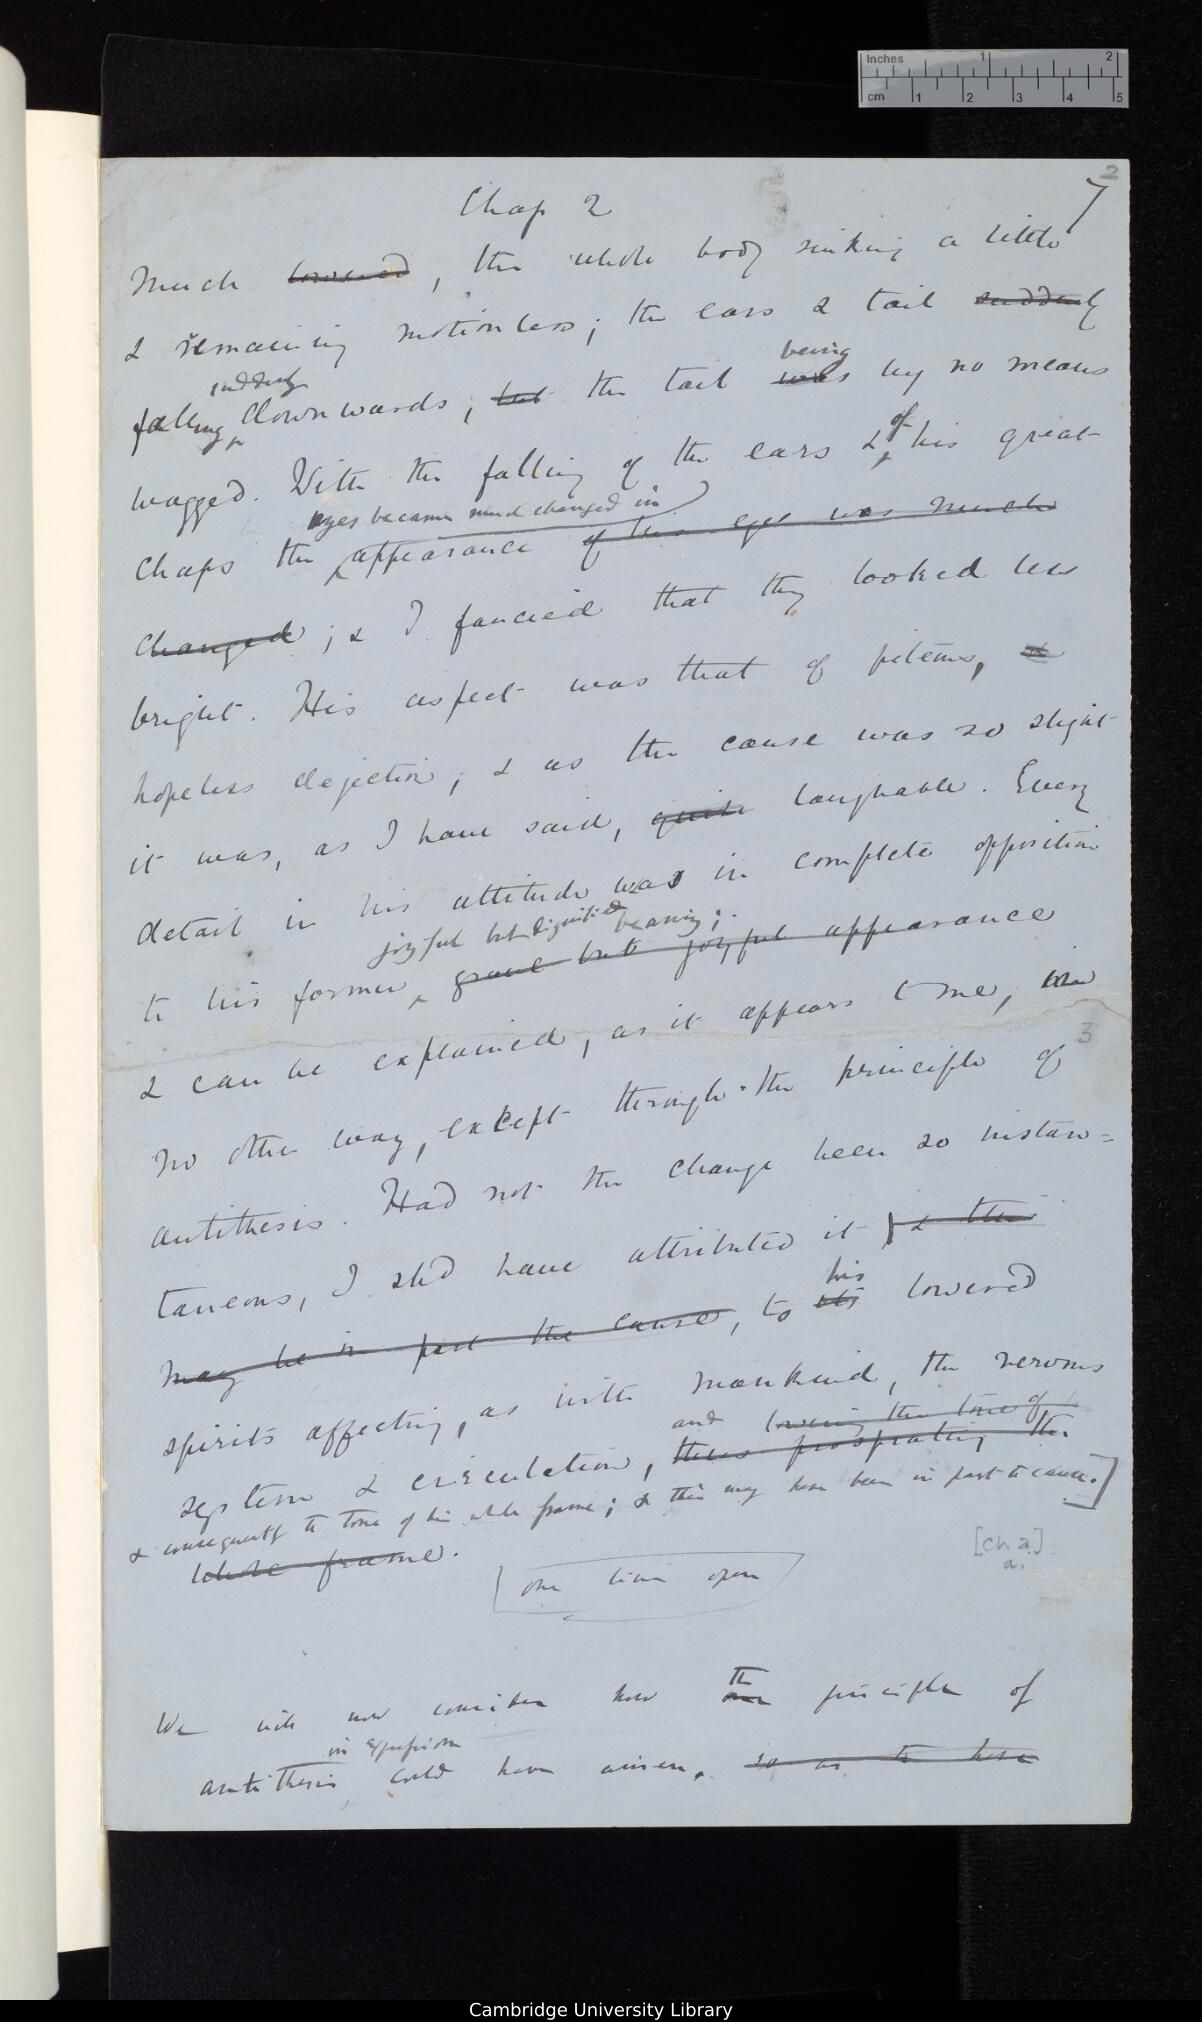 Inches 1 2
cm 1 2 3 4 5
2
Chap 2
7
much lowered, the whole body sinking a little
& remaining motionless; the ears & tail suddenly
suddenly being
falling downwards, but the tail was by no means
of
wagged. With the falling of the ears & his great
eyes became much changed in
chaps the appearance of his eyes was much
changed; & I fancied that they looked less
bright. His aspect was that of piteous, &
hopeless dejection; & as the cause was so slight
it was, as I have said, quite laughable. Every
detail in his attitude was in complete opposition
joyful but dignified bearing;
to his former grave but joyful appearance
& can be explained, as it appears to me, in
3
no other way, except through the principle of
antithesis. Had not the change been so instan=
taneous, I shd have attributed it & this
his
may be in part the cause, to its lowered
spirits affecting, as with mankind, the nervous
and lowering the tone of
system & circulation, thus prostrating the
& consequently the tone of his whole frame; & this may have been in part the cause.]
whole frame.
[Ch 2]
a.
one line open
the
We will now consider how our principle of
in expression
antithesis could have arisen, so as to have
Cambridge University Library